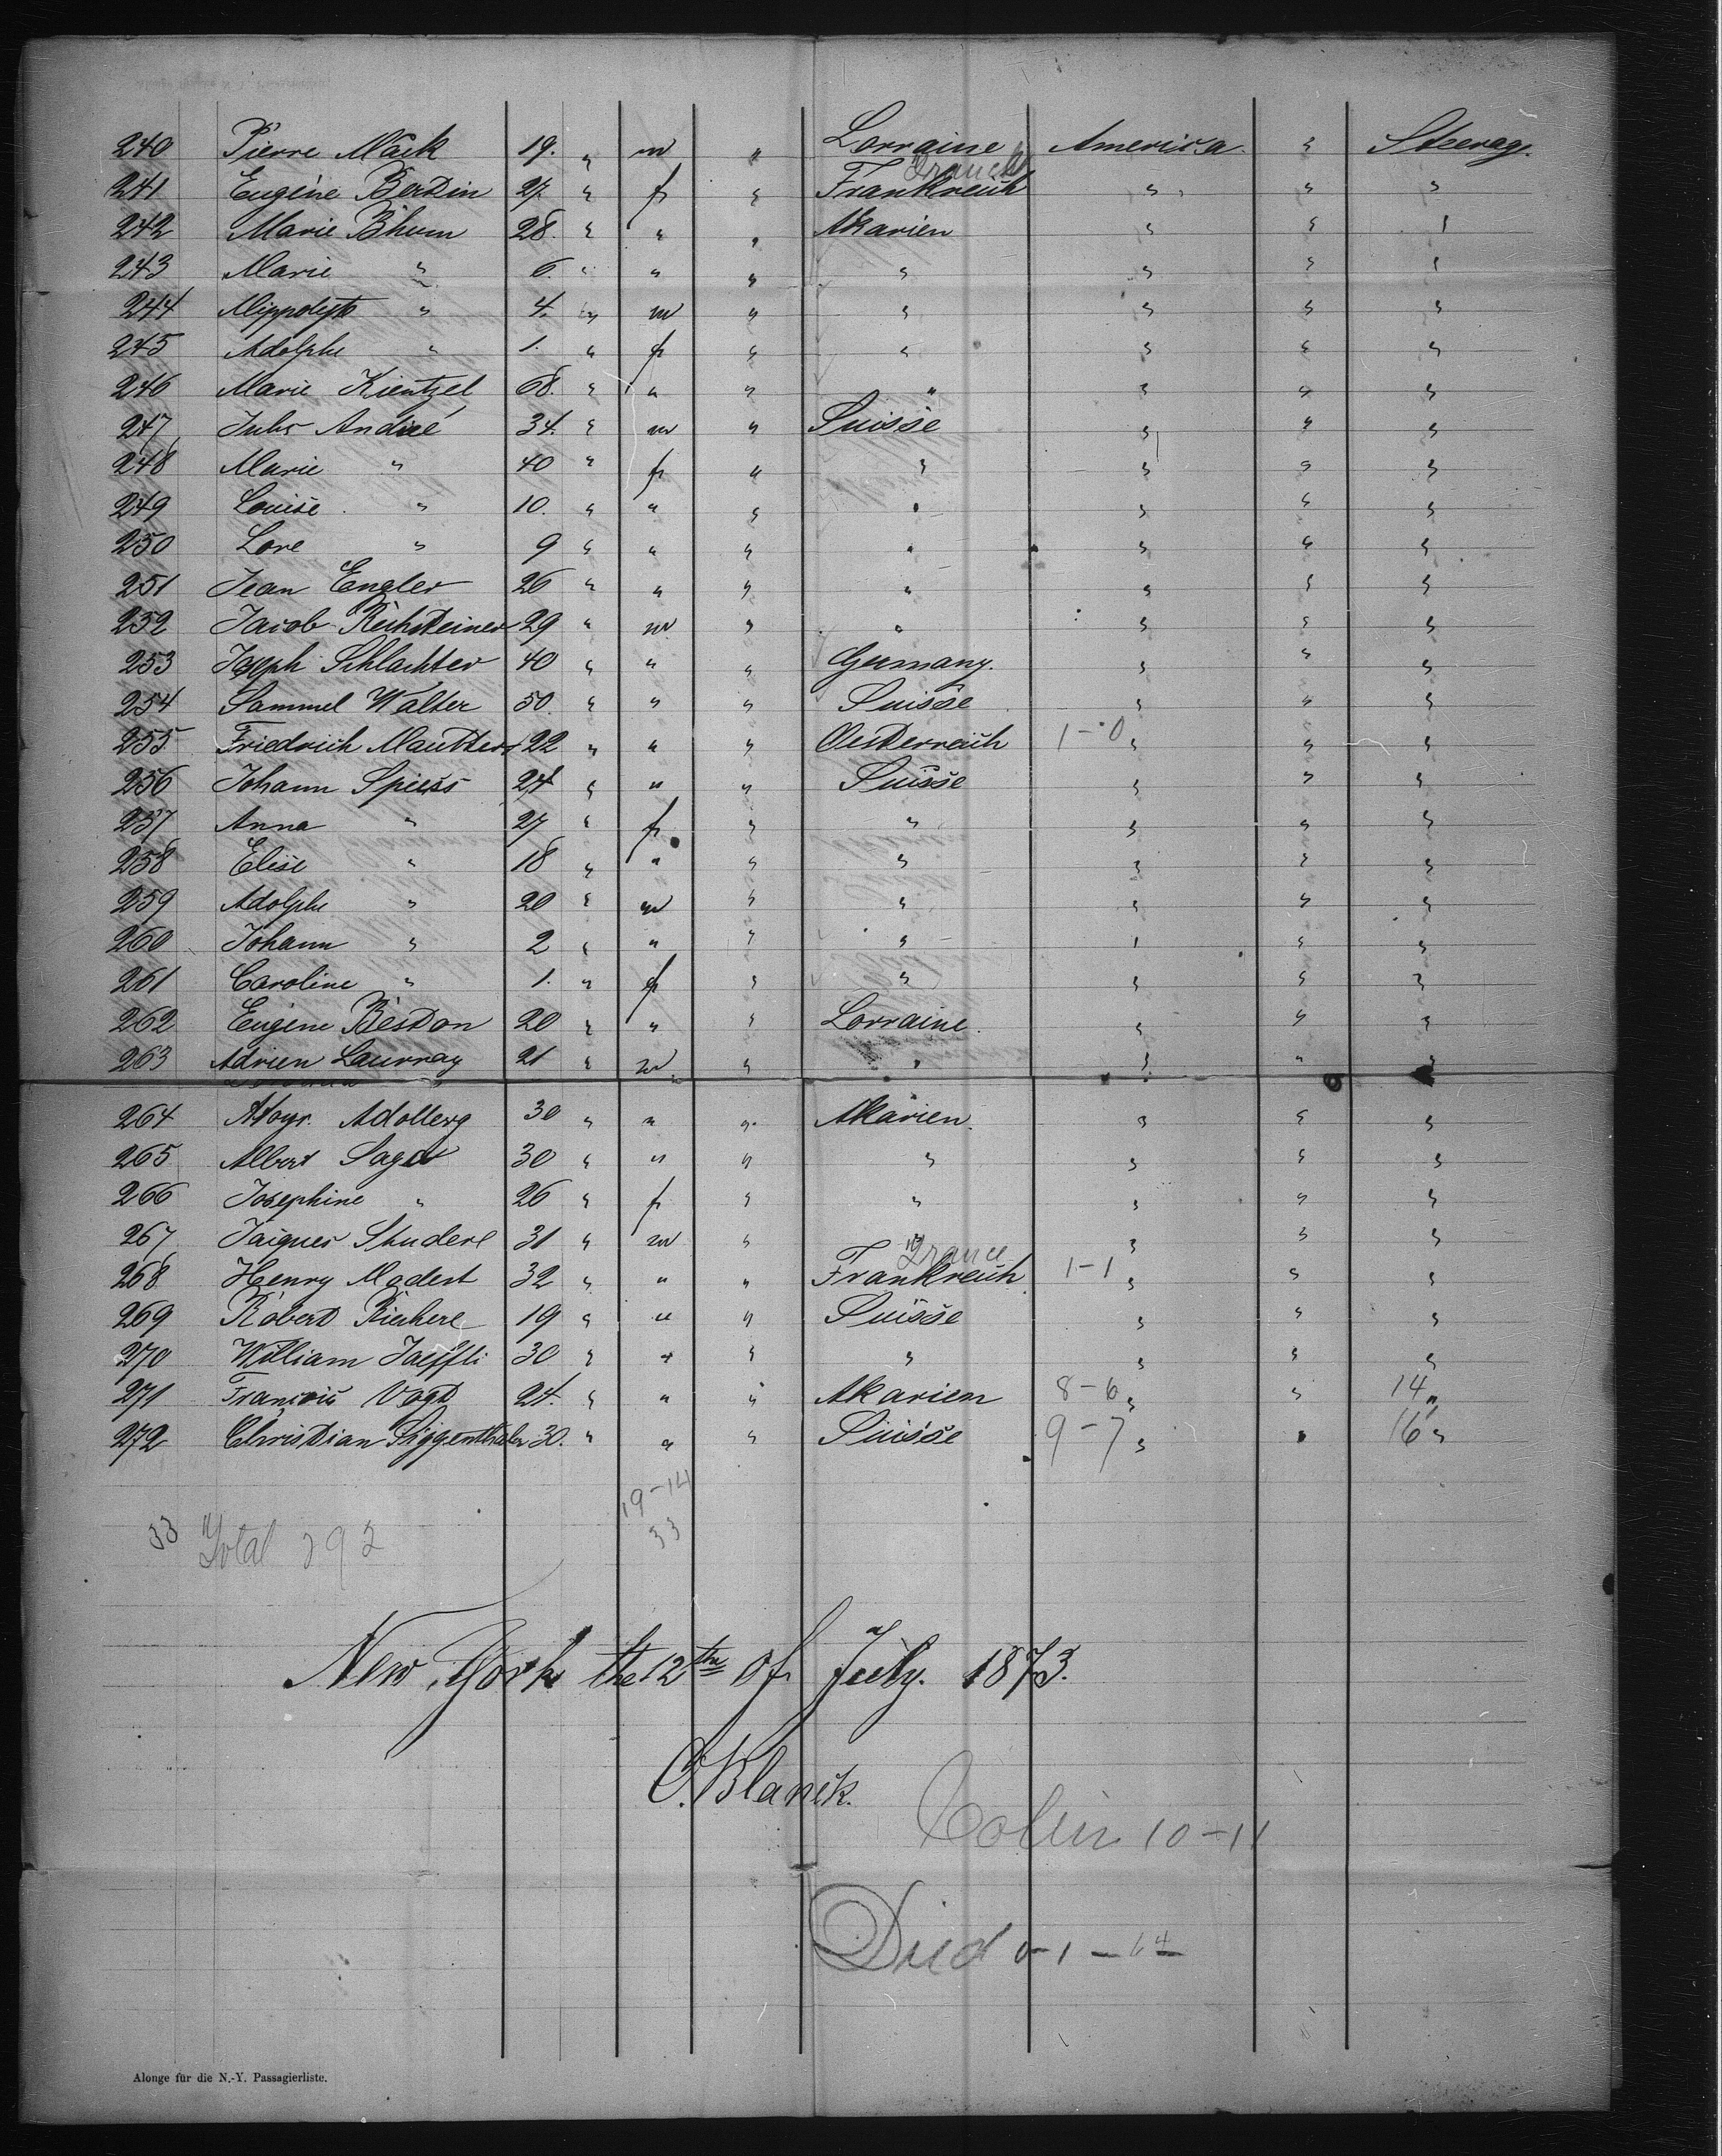 240 Pierre Mack 19. " m " Lorraine America " Steerag.
France
241 Eugéne Berdin 27. " f " Frankreich " " "
242 Marie Bhum 28. " " " Akarien " " "
243 Marie " 6. " " " " " " "
244 Hippolyt " 4. " m " " " " "
245 Adolphe " 1. " f " " " " "
246 Marie Kientzel 68. " " " " " " "
247 Jules André 34. " m " Suisse " " "
248 Marie " 40 " f " " " " "
249 Louise " 10. " " " " " " "
250 Lore " 9 " " " " " " "
251 Jean Engler 26 " " " " " " "
252 Jacob Rechsteiner 29 " m " " " " "
253 Joseph Schlachter 40 " " " Germany. " " "
254 Sammel Walter 50. " " " Suisse " " "
255 Friedrich Mautter 22 " " " Oesterreich 1-0 " " "
256 Johann Spiess 24 " " " Suisse " " "
257 Anna " 27 " f " " " " "
258 Elise " 18 " " " " " " "
259 Adolphe " 20 " m " " " " "
260 Johann " 2 " " " " " " "
261 Caroline " 1. " f " " " " "
262 Eugéne Beston 20 " " " Lorraine. " " "
263 Adrien Laurray 21 " m " " " " "
264 Adolberg 30 " " " Akarien. " " "
265 Albert 30 " " " " " " "
266 Josephine " 26 " f " " " " "
267 Jaques Studere 31 " m " " " " "
France
268 Henry Modest 32 " " " Frankreich 1-1 " " "
269 Robert 19 " " " Suisse " " "
270 William Jaeffli 30 " " " " " " "
271 François Vogt 24. " " " Akarien 8-6 " " 14 "
272 Christian Siggenthaler 30. " " " Suisse 9-7 " " 16 "
19-14
33 Total 292 33
New York the 12th of July. 1873.
C. Blanck.
10-11
Died 0-1-
Alonge für die N.-Y. Passagierliste.